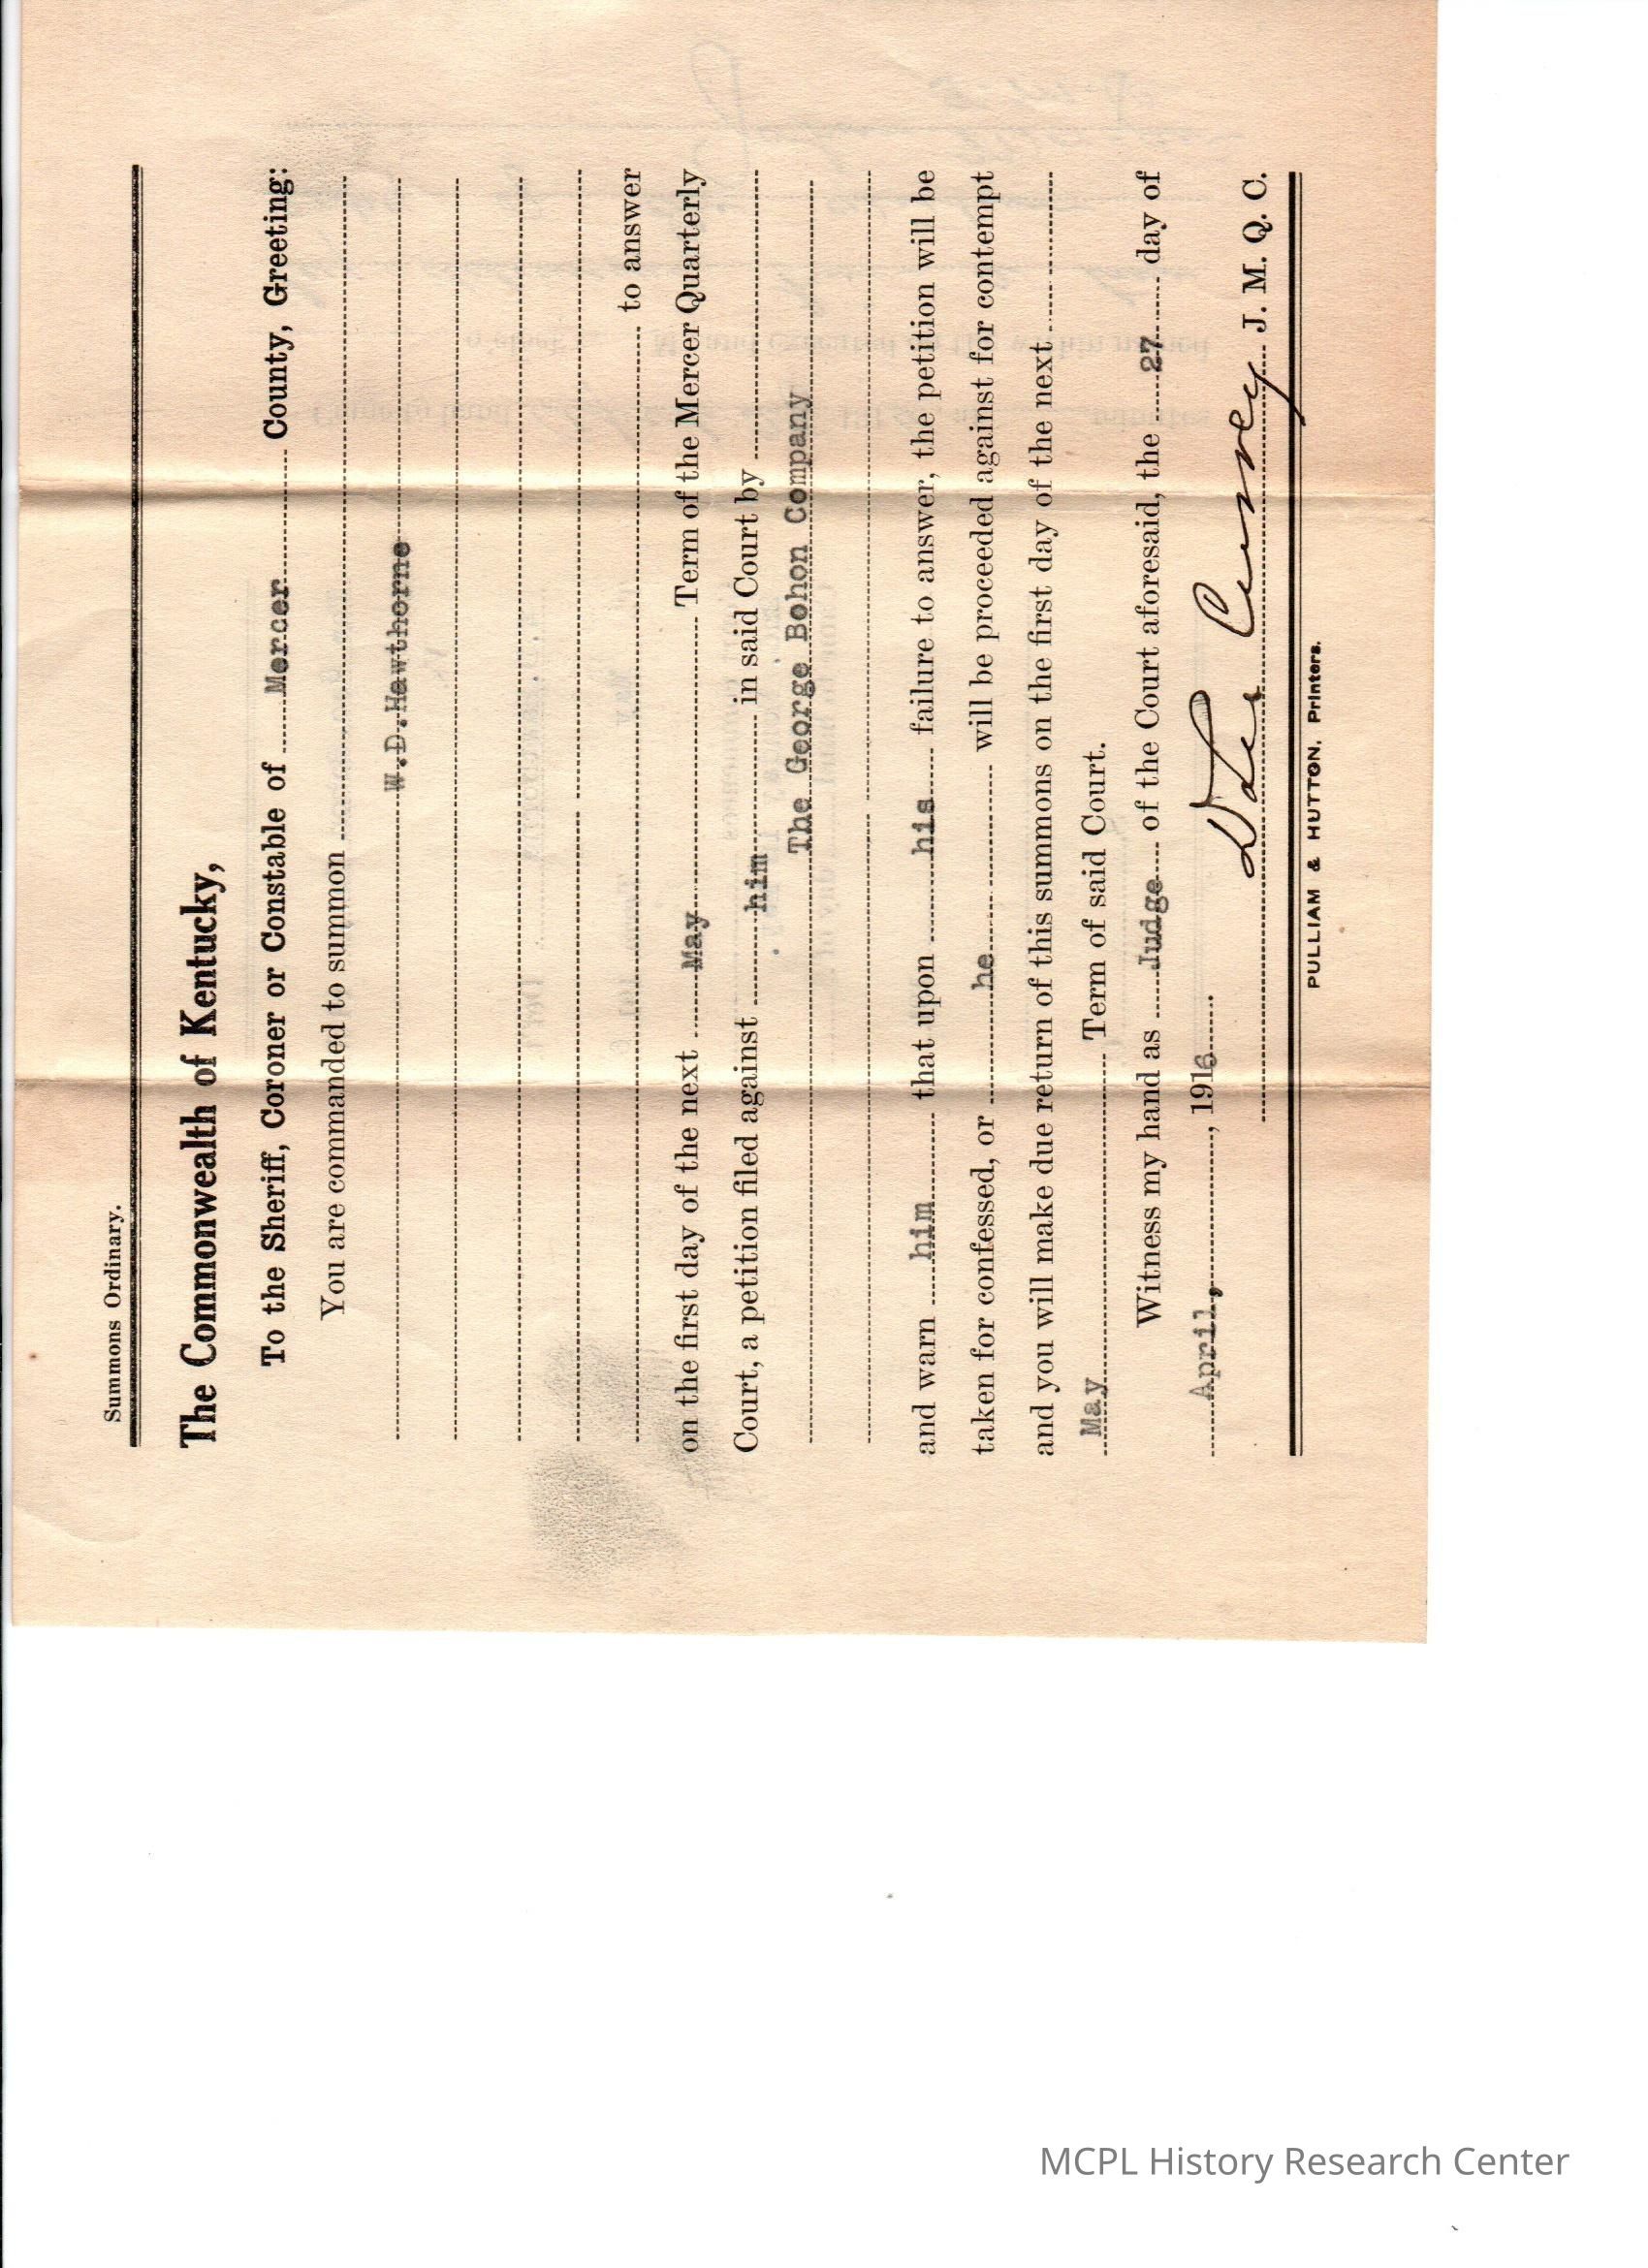 Summons Ordinary.
The Commonwealth of Kentucky,
To the Sheriff, Coroner or Constable of Mercer County, Greeting:
You are commanded to summon
W.D.Hawthorne
to answer
on the first day of the next May Term of the Mercer Quarterly
Court, a petition filed against him in said Court by
The George Bohon Company
and warn him that upon his failure to answer, the petition will be
taken for confessed, or he will be proceeded against for contempt
and you will make due return of this summons on the first day of the next
May Term of said Court.
Witness my hand as Judge of the Court aforesaid, the 27 day of
April, , 1916
J. M. Q. C.
PULLIAM & HUTTON, Printers.
MCPL History Research Center